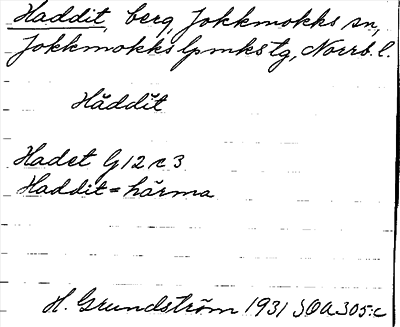 Haddit, berg, Jokkmokks sn,
Jokkmokks lpmkstg, Norrb. l.
Håddĭt
Hadet G 12 c 3
Haddit = härma
H. Grundström 1931 SOA 305:c